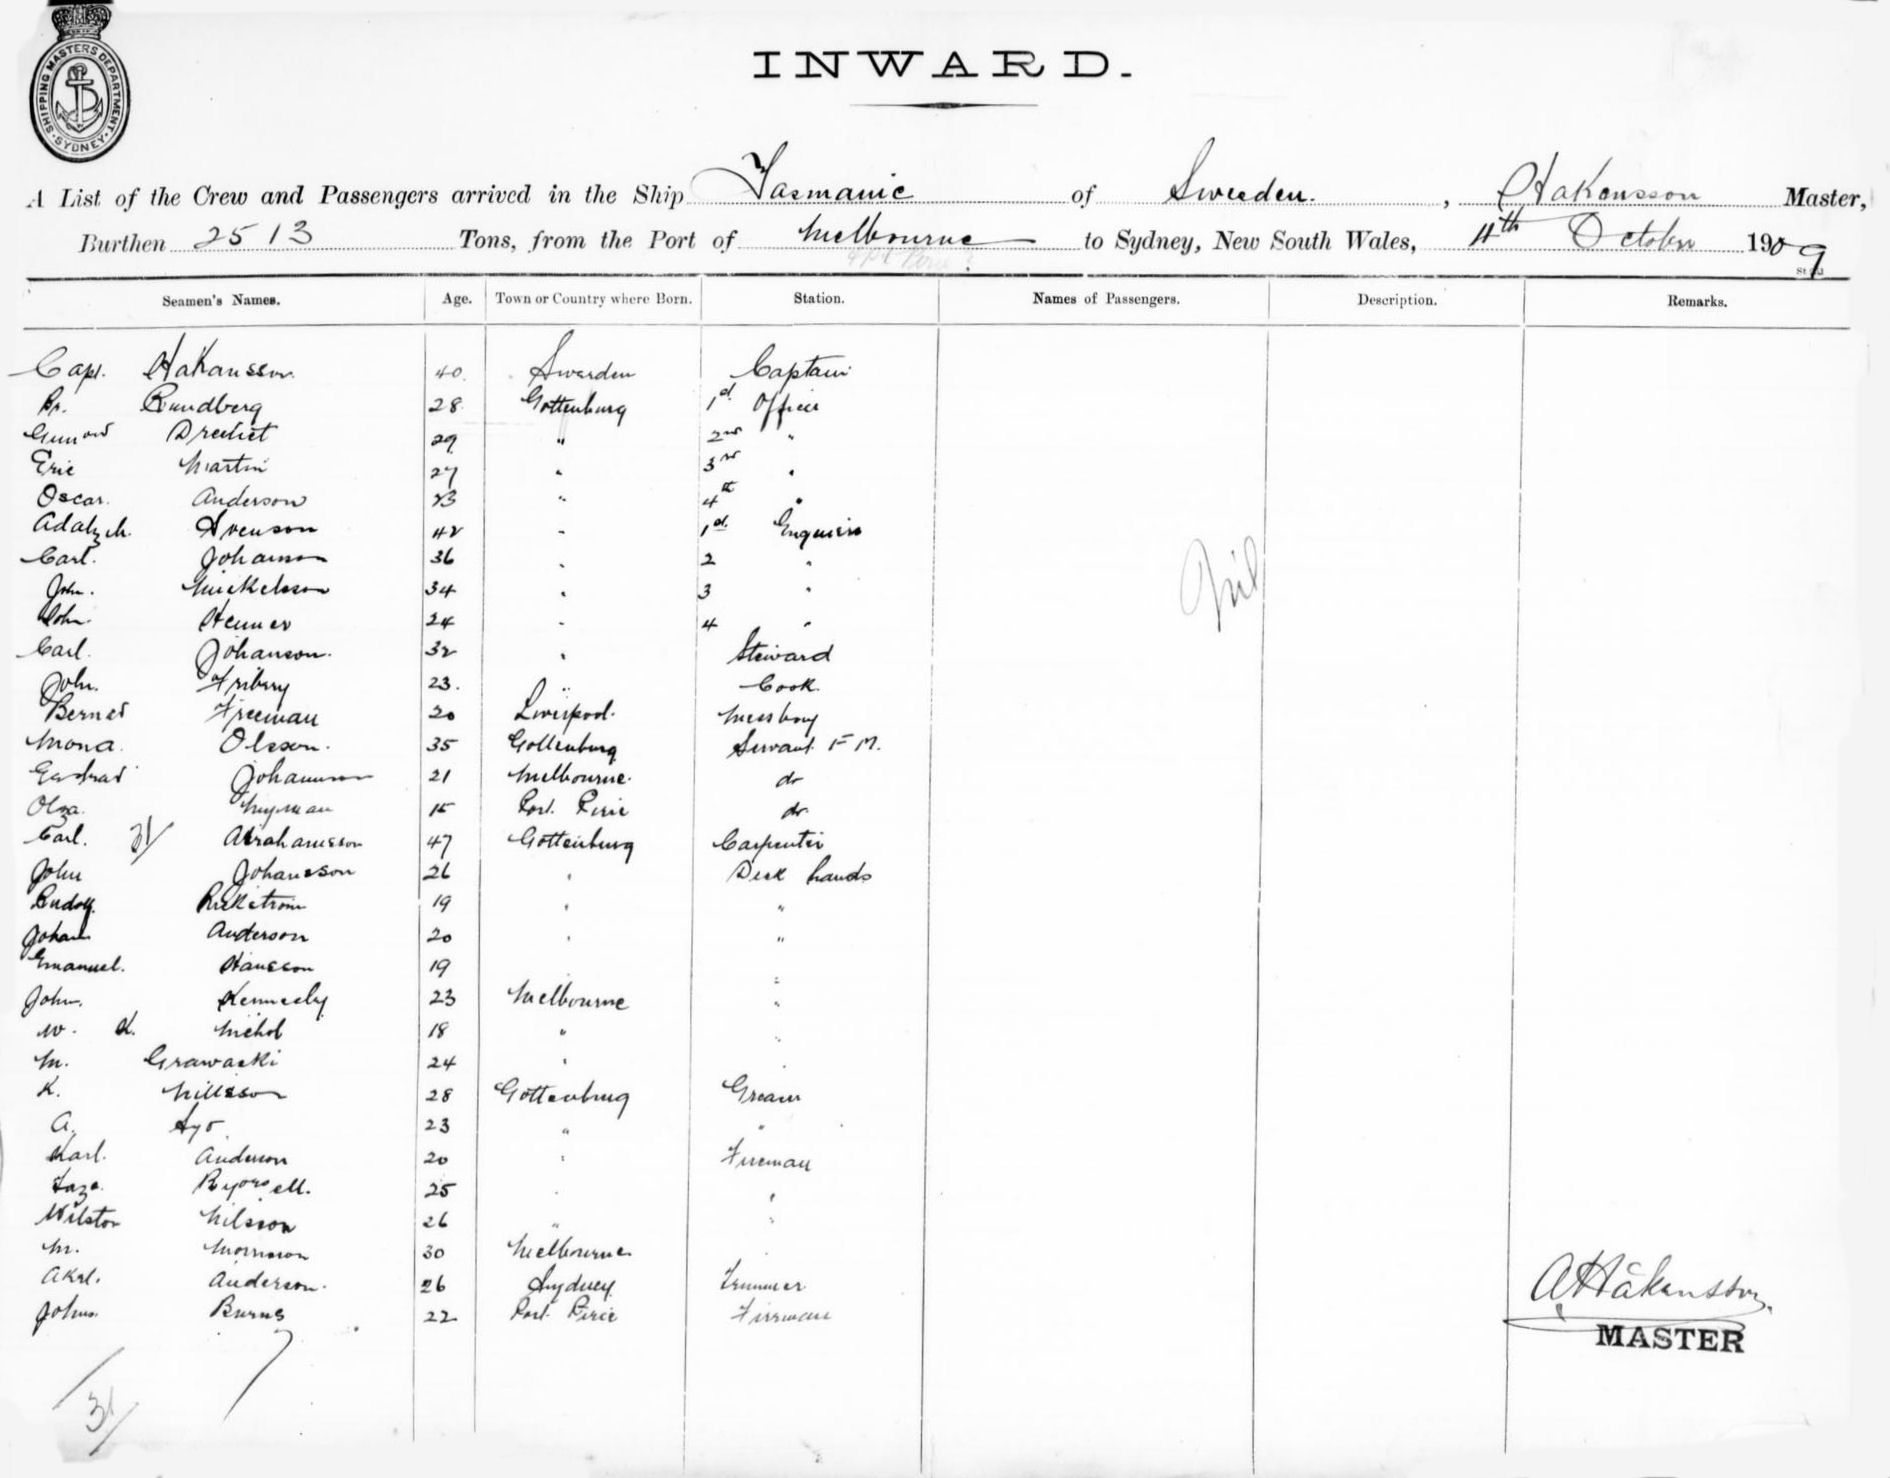 SHIPPING MASTERS DEPARTMENT · SYDNEY ·
INWARD.
A List of the Crew and Passengers arrived in the Ship Tasmanic of Sweden. , Hakansson Master,
Burthen 2513 Tons, from the Port of Melbourne to Sydney, New South Wales, 11th October 1909
Seamen's Names. Age. Town or Country where Born. Station. Names of Passengers. Description. Remarks.
Capt. Hakansson 40 Swearden Captain
Rundberg 28 Gottenburg 1st Officer
29 " 2nd "
Eric Martin 27 " 3rd "
Oscar. Anderson 23 " 4th "
Svenson 42 " 1st Engineer
Carl. Johanson 36 " 2 "
John. Mickelsson 34 " 3 "
John. 24 " 4 "
Carl. Johanson. 32 " Steward
John. Friberg 23. " Cook.
Bernat Freeman 20 Liverpool. Messboy
Mona. Olsson. 35 Gottenburg Servant F M.
Johannson 21 Melbourne. do
Olga. Nyman 15 Port. Pirie do
Carl. 31/ Abrahamsson 47 Gottenburg Carpenter
John Johansson 26 " Deck hands
Rudolf. Rickstrom 19 " "
Johan Anderson 20 " "
Emanuel. Hansson 19 "
John. Kennedy 23 Melbourne "
W. K. Nichol 18 " "
M. Grawaski 24 "
K. Nillsson 28 Gottenburg Greaser
A. 23 " "
Karl. Anderson 20 " Fireman
25 "
Nilsson 26 " "
M. Morrison 30 Melbourne "
Axel. Anderson. 26 Sydney Trimmer
John. Burns 22 Port. Pirie Fireman
Nil
A Håkansson
MASTER
31/